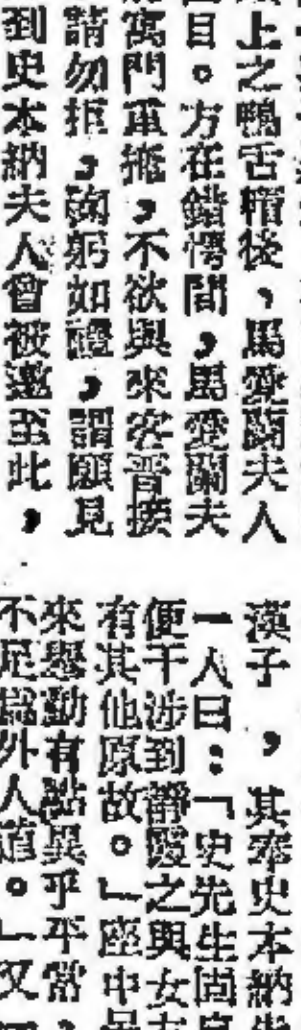 上之鴨舌帽後、馬愛蘭夫人
目。方在錯愕間，馬愛蘭夫
寓門重掩，不欲與來客晉接
請勿拒，鞠躬如禮，謂願見
到史本納夫人曾被邀至此，
漢子，其率史本納
一人曰：「史先生固
便干涉到靜媛之與女
有其他原故。」座中
來舉動有點異乎平常，
不足爲外人道。」又